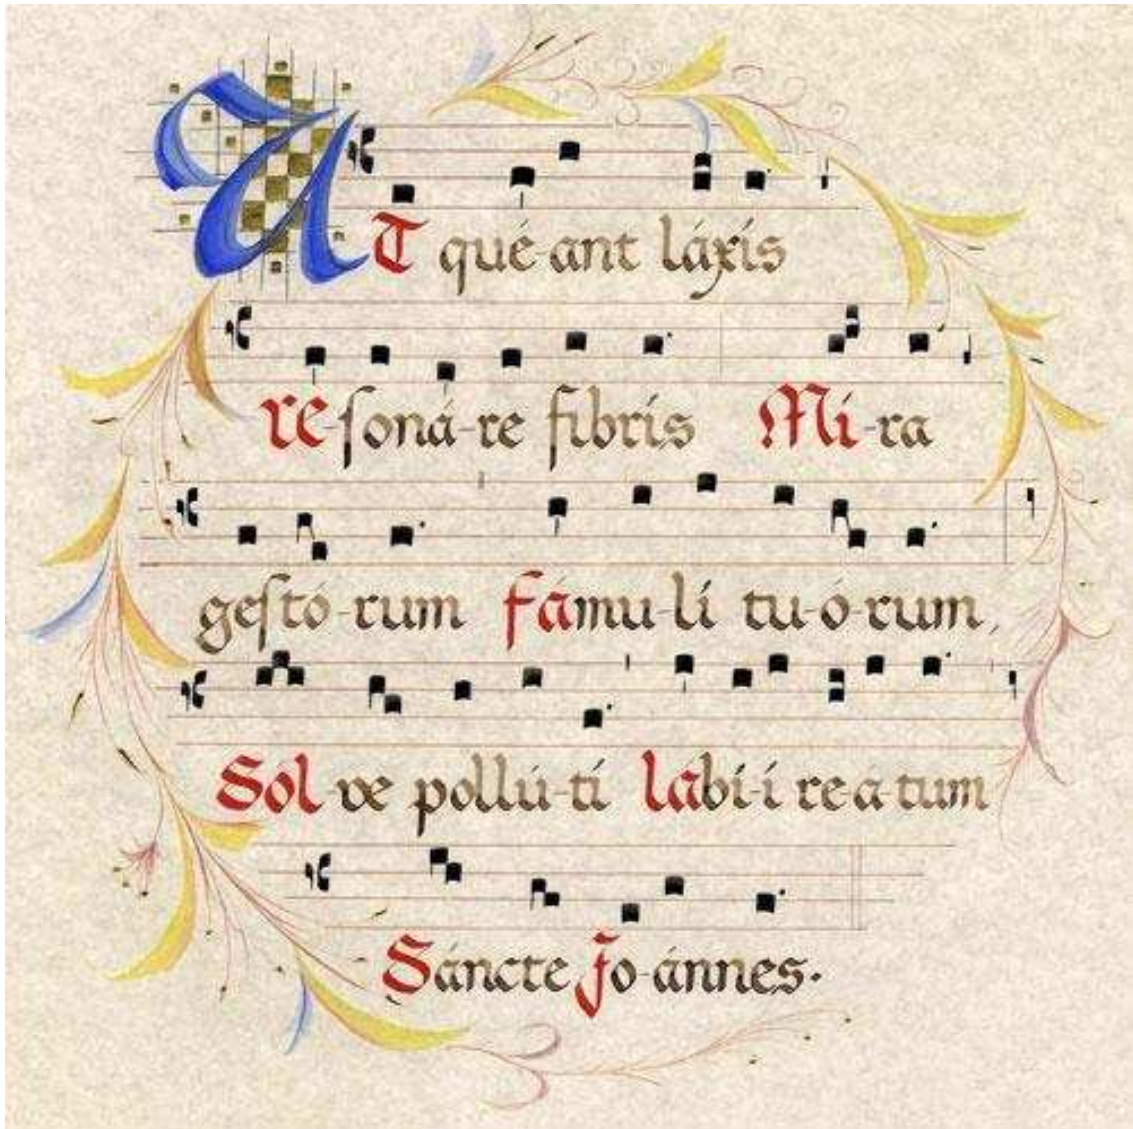 UT qué-ant láxis
re-soná-re fibris Mi-ra
gestó-rum fámu-li tu-ó-rum,
Sol-ve pollú-ti labí-i re-á-tum
Sáncte Jo-ánnes.